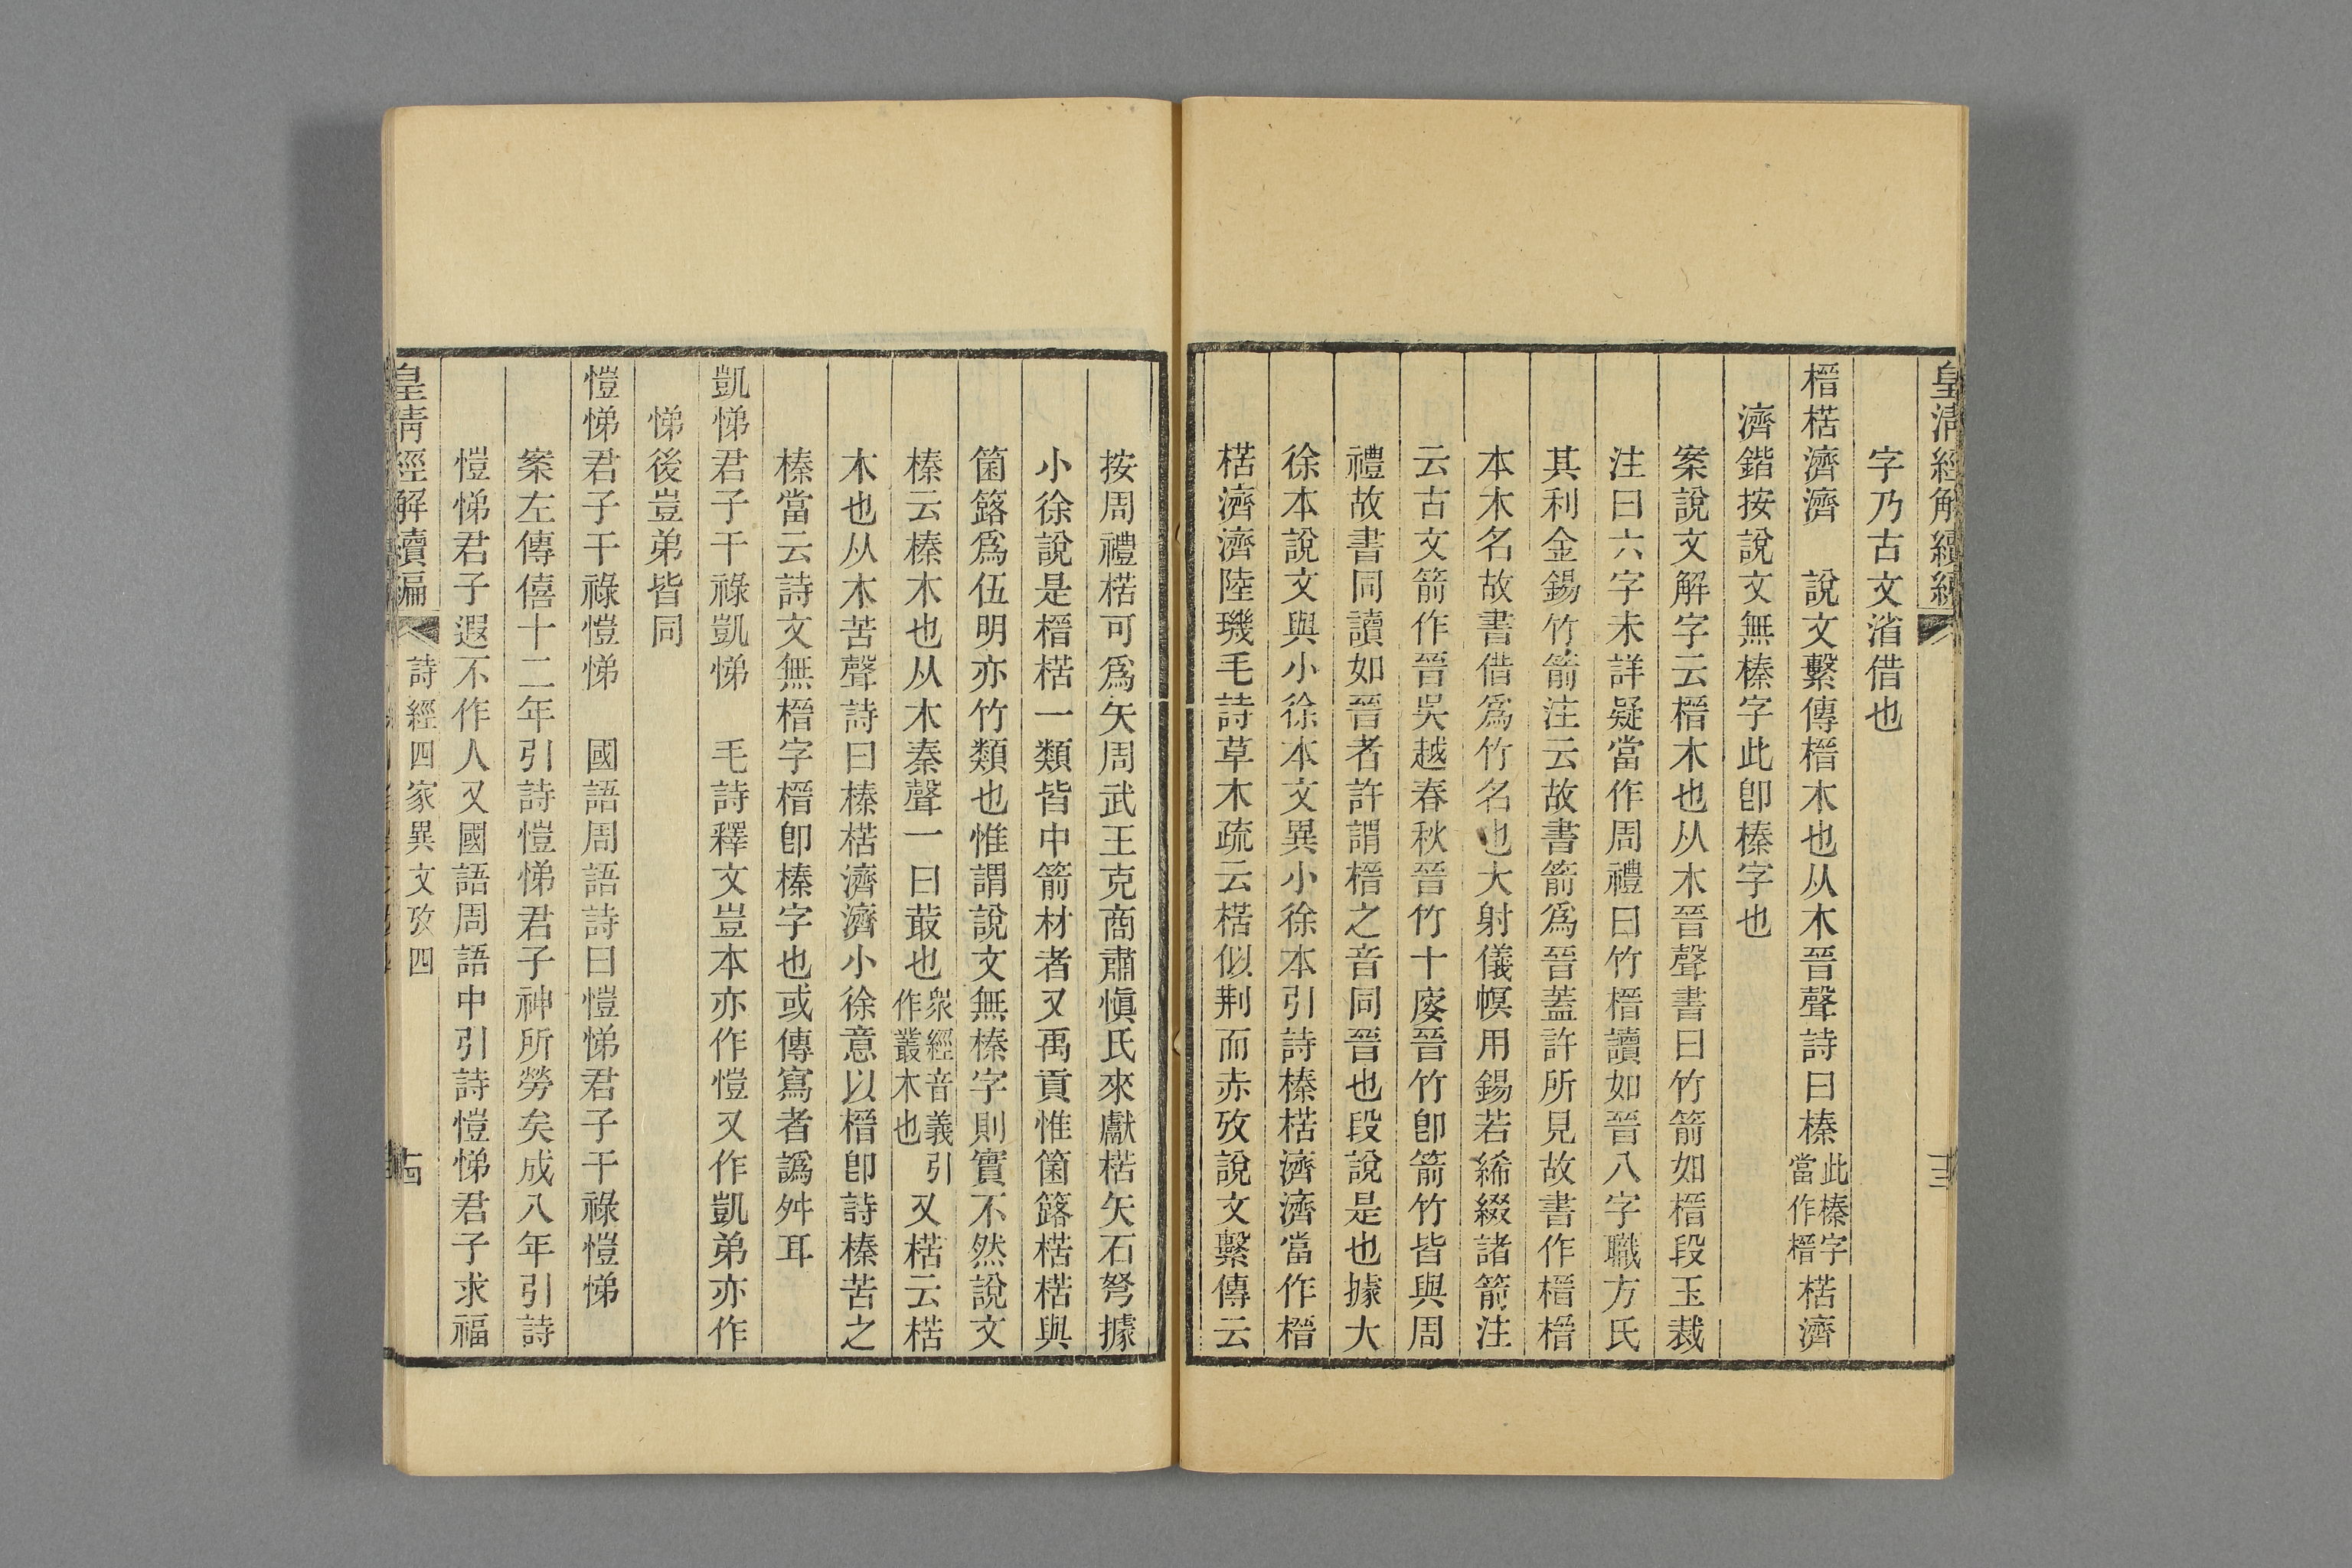 皇清經解續編
字乃古文渻借也
榗楛濟濟　說文繫傳榗木也从木晉聲詩曰榛此榛字當作榗楛濟
濟鍇按說文無榛字此卽榛字也
案說文解字云榗木也从木晉聲書曰竹箭如榗段玉裁
注曰六字未詳疑當作周禮曰竹榗讀如晉八字職方氏
其利金錫竹箭注云故書箭爲晉蓋許所見故書作榗榗
本木名故書借爲竹名也大射儀幎用錫若絺綴諸箭注
云古文箭作晉吳越春秋晉竹十廋晉竹卽箭竹皆與周
禮故書同讀如晉者許謂榗之音同晉也段說是也據大
徐本說文與小徐本文異小徐本引詩榛楛濟濟當作榗
楛濟濟陸璣毛詩草木疏云楛似荆而赤攷說文繫傳云
按周禮楛可爲矢周武王克商肅愼氏來獻楛矢石弩據
小徐說是榗楛一類皆中箭材者又禹貢惟箘簬楛楛與
箘簬爲伍明亦竹類也惟謂說文無榛字則實不然說文
榛云榛木也从木秦聲一曰菆也衆經音義引作叢木也又楛云楛
木也从木苦聲詩曰榛楛濟濟小徐意以榗卽詩榛苦之
榛當云詩文無榗字榗卽榛字也或傳寫者譌舛耳
凱悌君子干祿凱悌　毛詩釋文豈本亦作愷又作凱弟亦作
悌後豈弟皆同
愷悌君子干祿愷悌　國語周語詩曰愷悌君子干祿愷悌
案左傳僖十二年引詩愷悌君子神所勞矣成八年引詩
愷悌君子遐不作人又國語周語中引詩愷悌君子求福
皇清經解續編　詩經四家異文攷四　古